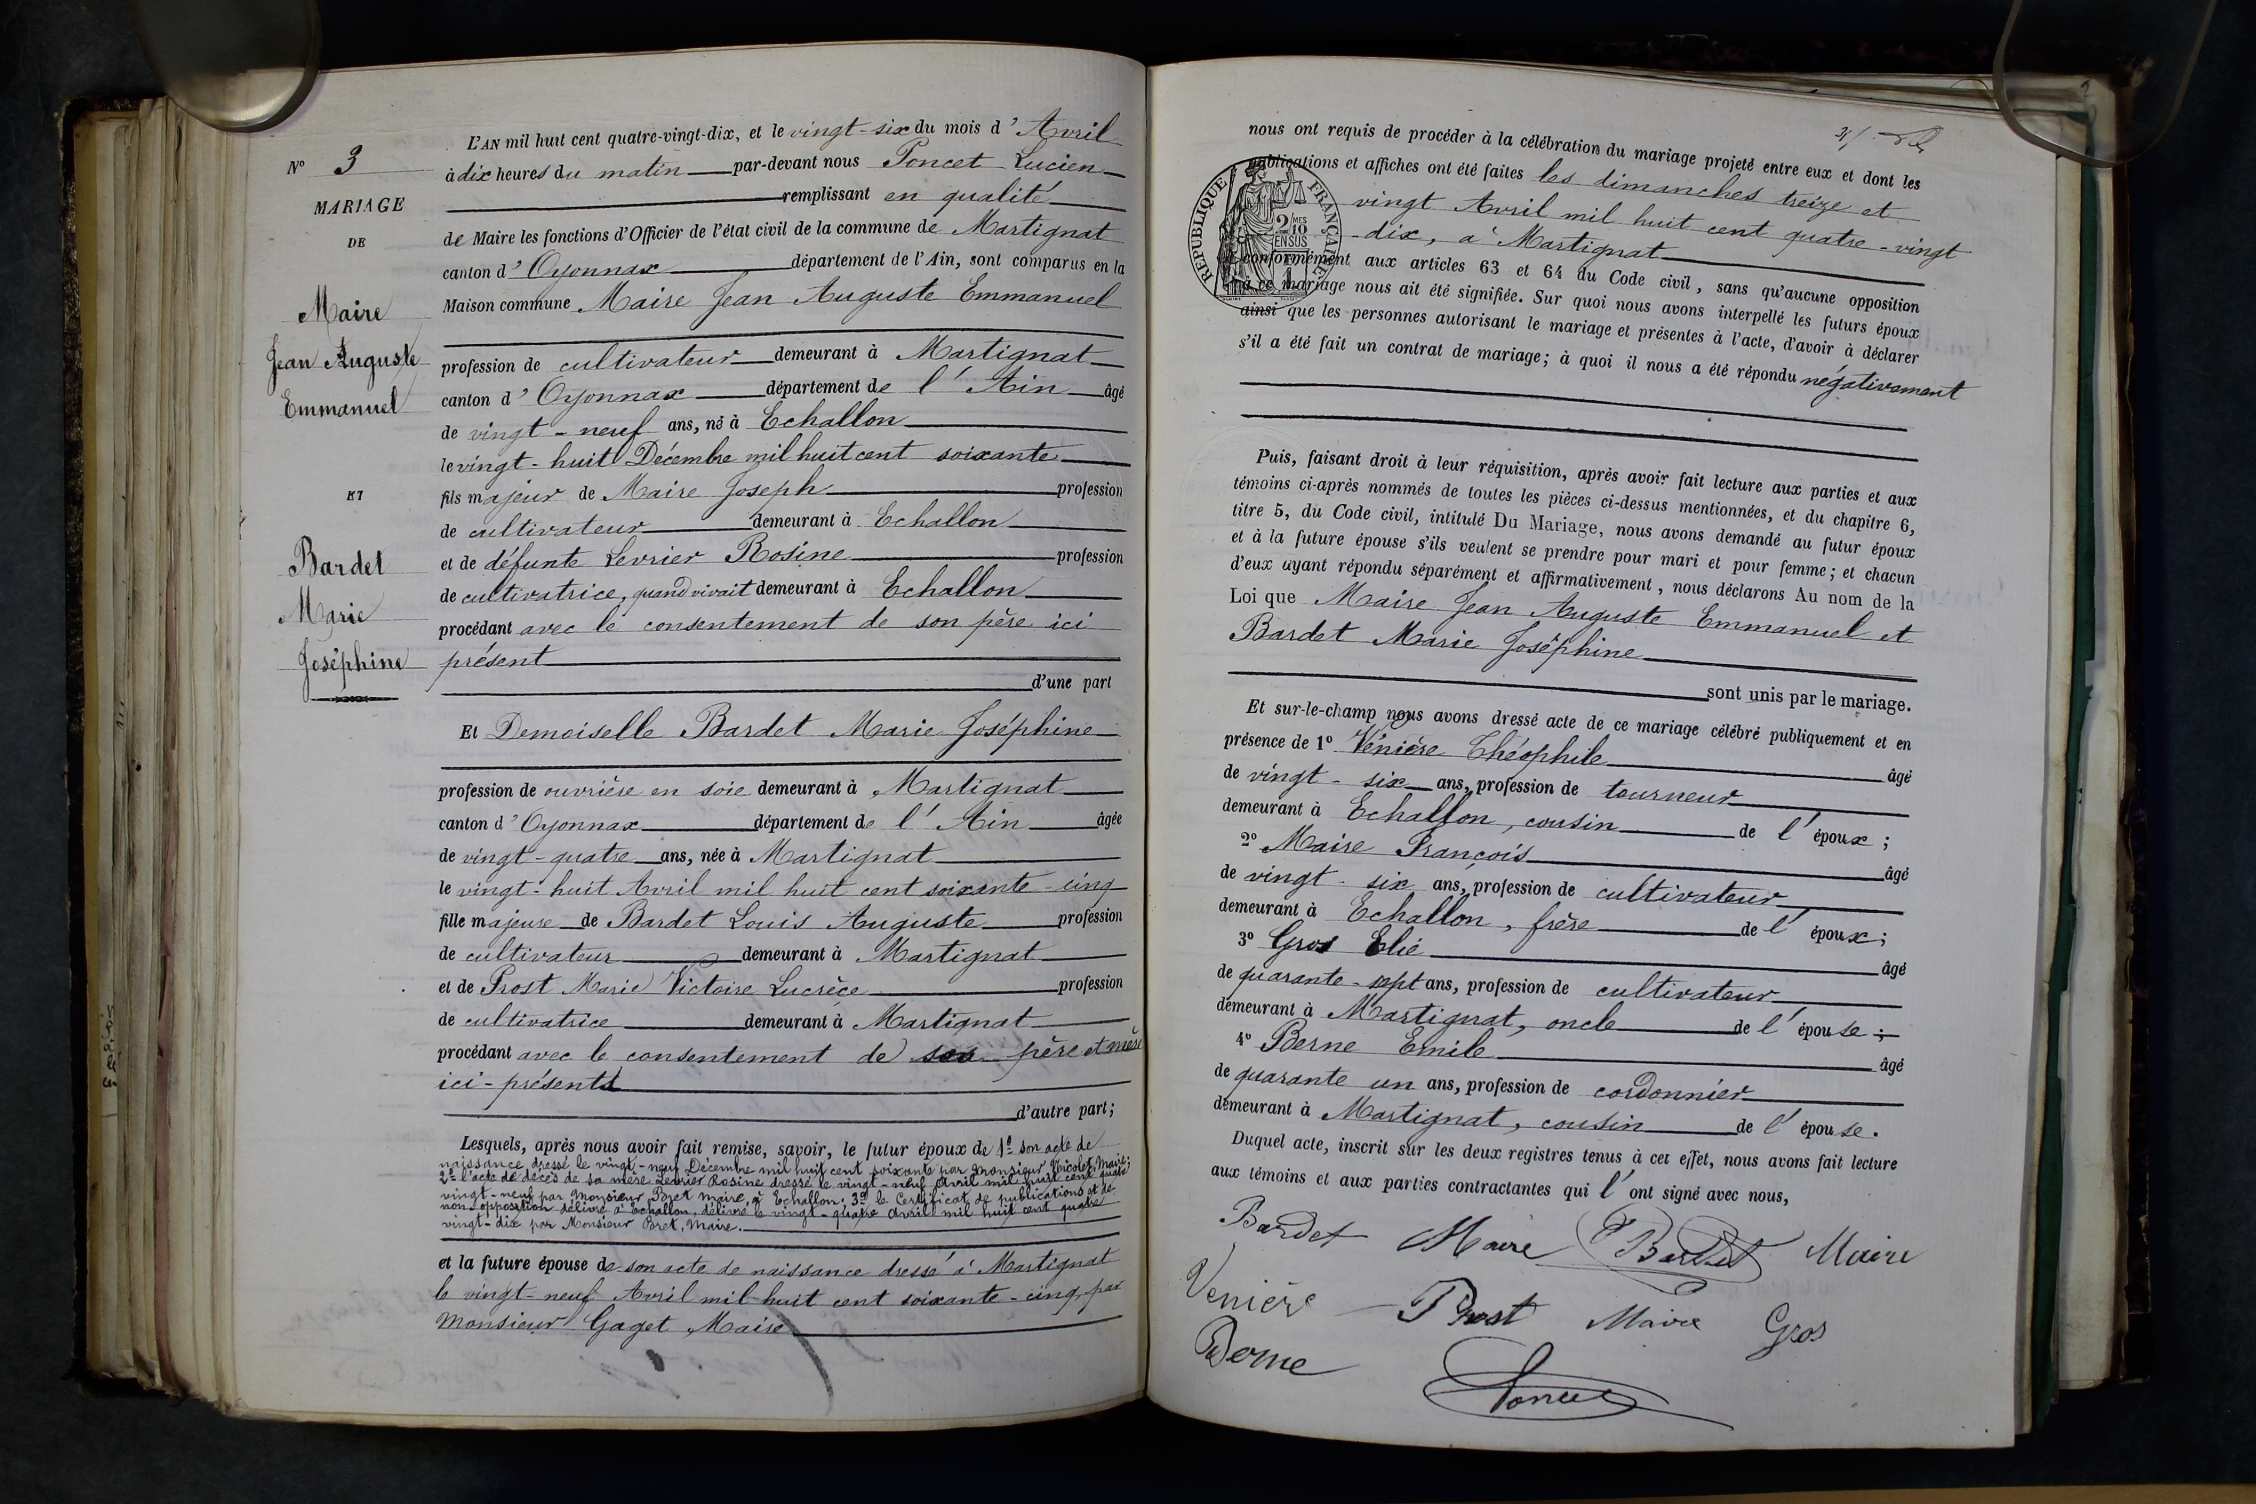 N° 3
MARIAGE
DE
Maire
Jean Auguste
Emmanuel
ET
Bardet
Marie
Joséphine
L'AN mil huit cent quatre-vingt-dix, et le vingt-six du mois d'Avril
à dix heures du matin par-devant nous Poncet Lucien
remplissant en qualité
de Maire les fonctions d'Officier de l'état civil de la commune de Martignat
canton d'Oyonnax département de l'Ain, sont comparus en la
Maison commune Maire Jean Auguste Emmanuel
profession de cultivateur demeurant à Martignat
canton d'Oyonnax département de l'Ain âgé
de vingt-neuf ans, né à Echallon
le vingt-huit Décembre mil huit cent soixante
fils majeur de Maire Joseph profession
de cultivateur demeurant à Echallon
et de défunte Levrier Rosine profession
de cultivatrice, quand vivait demeurant à Echallon
procédant avec le consentement de son père ici
présent
d'une part
Et Demoiselle Bardet Marie Joséphine
profession de ouvrière en soie demeurant à Martignat
canton d'Oyonnax département de l'Ain âgée
de vingt-quatre ans, née à Martignat
le vingt-huit Avril mil huit cent soixante-cinq
fille majeure de Bardet Louis Auguste profession
de cultivateur demeurant à Martignat
et de Prost Marie Victoire Lucrèce profession
de cultivatrice demeurant à Martignat
procédant avec le consentement de ses père et mère
ici-présents
d'autre part;
Lesquels, après nous avoir fait remise, savoir, le futur époux de 1° son acte de
naissance dressé le vingt-neuf Décembre mil huit cent soixante par Monsieur Nicolet, Maire;
2° l'acte de décès de sa mère Levrier Rosine dressé le vingt-neuf Avril mil huit cent quatre
vingt-neuf par Monsieur Poret maire, à Echallon; 3° le Certificat de publications et de
non-opposition délivré à Echallon, délivré le vingt-quatre Avril mil huit cent quatre
vingt-dix par Monsieur Poret, Maire.
et la future épouse de son acte de naissance dressé à Martignat
le vingt-neuf Avril mil huit cent soixante-cinq, par
Monsieur Gaget Maire
nous ont requis de procéder à la célébration du mariage projeté entre eux et dont les
publications et affiches ont été faites les dimanches treize et
vingt Avril mil huit cent quatre-vingt
dix, à Martignat
conformément aux articles 63 et 64 du Code civil, sans qu'aucune opposition
à ce mariage nous ait été signifiée. Sur quoi nous avons interpellé les futurs époux
ainsi que les personnes autorisant le mariage et présentes à l'acte, d'avoir à déclarer
s'il a été fait un contrat de mariage; à quoi il nous a été répondu négativement
RÉPUBLIQUE FRANÇAISE
2/10 MES
EN SUS
Puis, faisant droit à leur réquisition, après avoir fait lecture aux parties et aux
témoins ci-après nommés de toutes les pièces ci-dessus mentionnées, et du chapitre 6,
titre 5, du Code civil, intitulé Du Mariage, nous avons demandé au futur époux
et à la future épouse s'ils veulent se prendre pour mari et pour femme; et chacun
d'eux ayant répondu séparément et affirmativement, nous déclarons Au nom de la
Loi que Maire Jean Auguste Emmanuel et
Bardet Marie Joséphine
sont unis par le mariage.
Et sur-le-champ nous avons dressé acte de ce mariage célébré publiquement et en
présence de 1° Venière Théophile âgé
de vingt-six ans, profession de tourneur
demeurant à Echallon, cousin de l'époux;
2° Maire François âgé
de vingt-six ans, profession de cultivateur
demeurant à Echallon, frère de l'époux;
3° Gros Elie âgé
de quarante-sept ans, profession de cultivateur
demeurant à Martignat, oncle de l'épouse;
4° Berne Emile âgé
de quarante un ans, profession de cordonnier
demeurant à Martignat, cousin de l'épouse.
Duquel acte, inscrit sur les deux registres tenus à cet effet, nous avons fait lecture
aux témoins et aux parties contractantes qui l'ont signé avec nous,
Bardet Maire Bardet Maire
Venière Prost Maire Gros
Berne Poncet